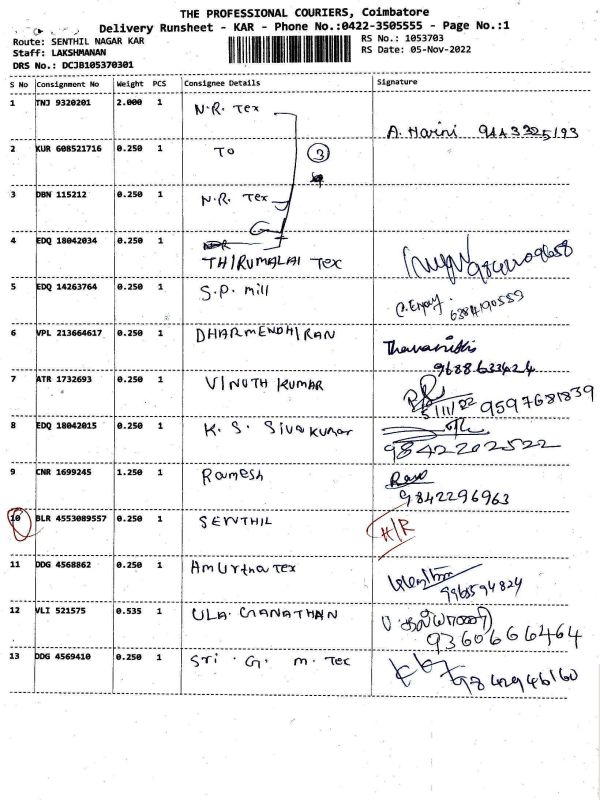 THE PROFESSIONAL COURIERS, Coimbatore
Delivery Runsheet - KAR - Phone No.:0422-3505555 - Page No.:1
Route: SENTHIL NAGAR KAR
RS No.: 1053703
Staff: LAKSHMANAN
RS Date: 05-Nov-2022
DRS No.: DCJB105370301
S No Consignment No Weight PCS Consignee Details Signature
1 TNJ 9320201 2.000 1 N.R. Tex
A. Harini 9443325193
2 KUR 608521716 0.250 1 TO
3
3 DBN 115212 0.250 1 N.R. Tex
4 EDQ 18042034 0.250 1 THIRUMALAI Tex
5 EDQ 14263764 0.250 1 S.P. mill 6384190559
6 VPL 213664617 0.250 1 DHARMENDHIRAN
9688633424
7 ATR 1732693 0.250 1 VINOTH KUMAR 5/11/22 9597681839
8 EDQ 18042015 0.250 1 K. S. Sivakumar 9842202522
9 CNR 1699245 1.250 1 Ramesh
9842296963
10 BLR 4553089557 0.250 1 SENTHIL H/R
11 DDG 4568862 0.250 1 Amurtha Tex
9965594824
12 VLI 521575 0.535 1 ULA. GANATHAN
9360666464
13 DDG 4569410 0.250 1 Sri . G. m. Tex
9842946160